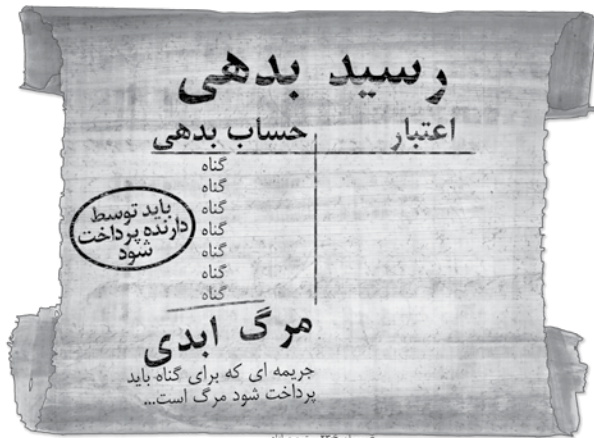 رسید بدهی
اعتبار
حساب بدهی
گناه
گناه
گناه
گناه
گناه
گناه
گناه
باید توسط
دارنده پرداخت
شود
مرگ ابدی
جریمه ای که برای گناه باید
پرداخت شود مرگ است...